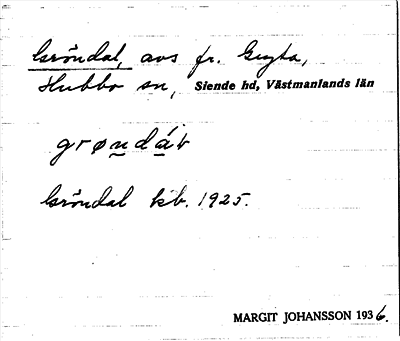 Gröndal, avs fr. Gryta,
Hubbo sn, Siende hd, Västmanlands län
grøndáv
Gröndal kb. 1925.
MARGIT JOHANSSON 1936.